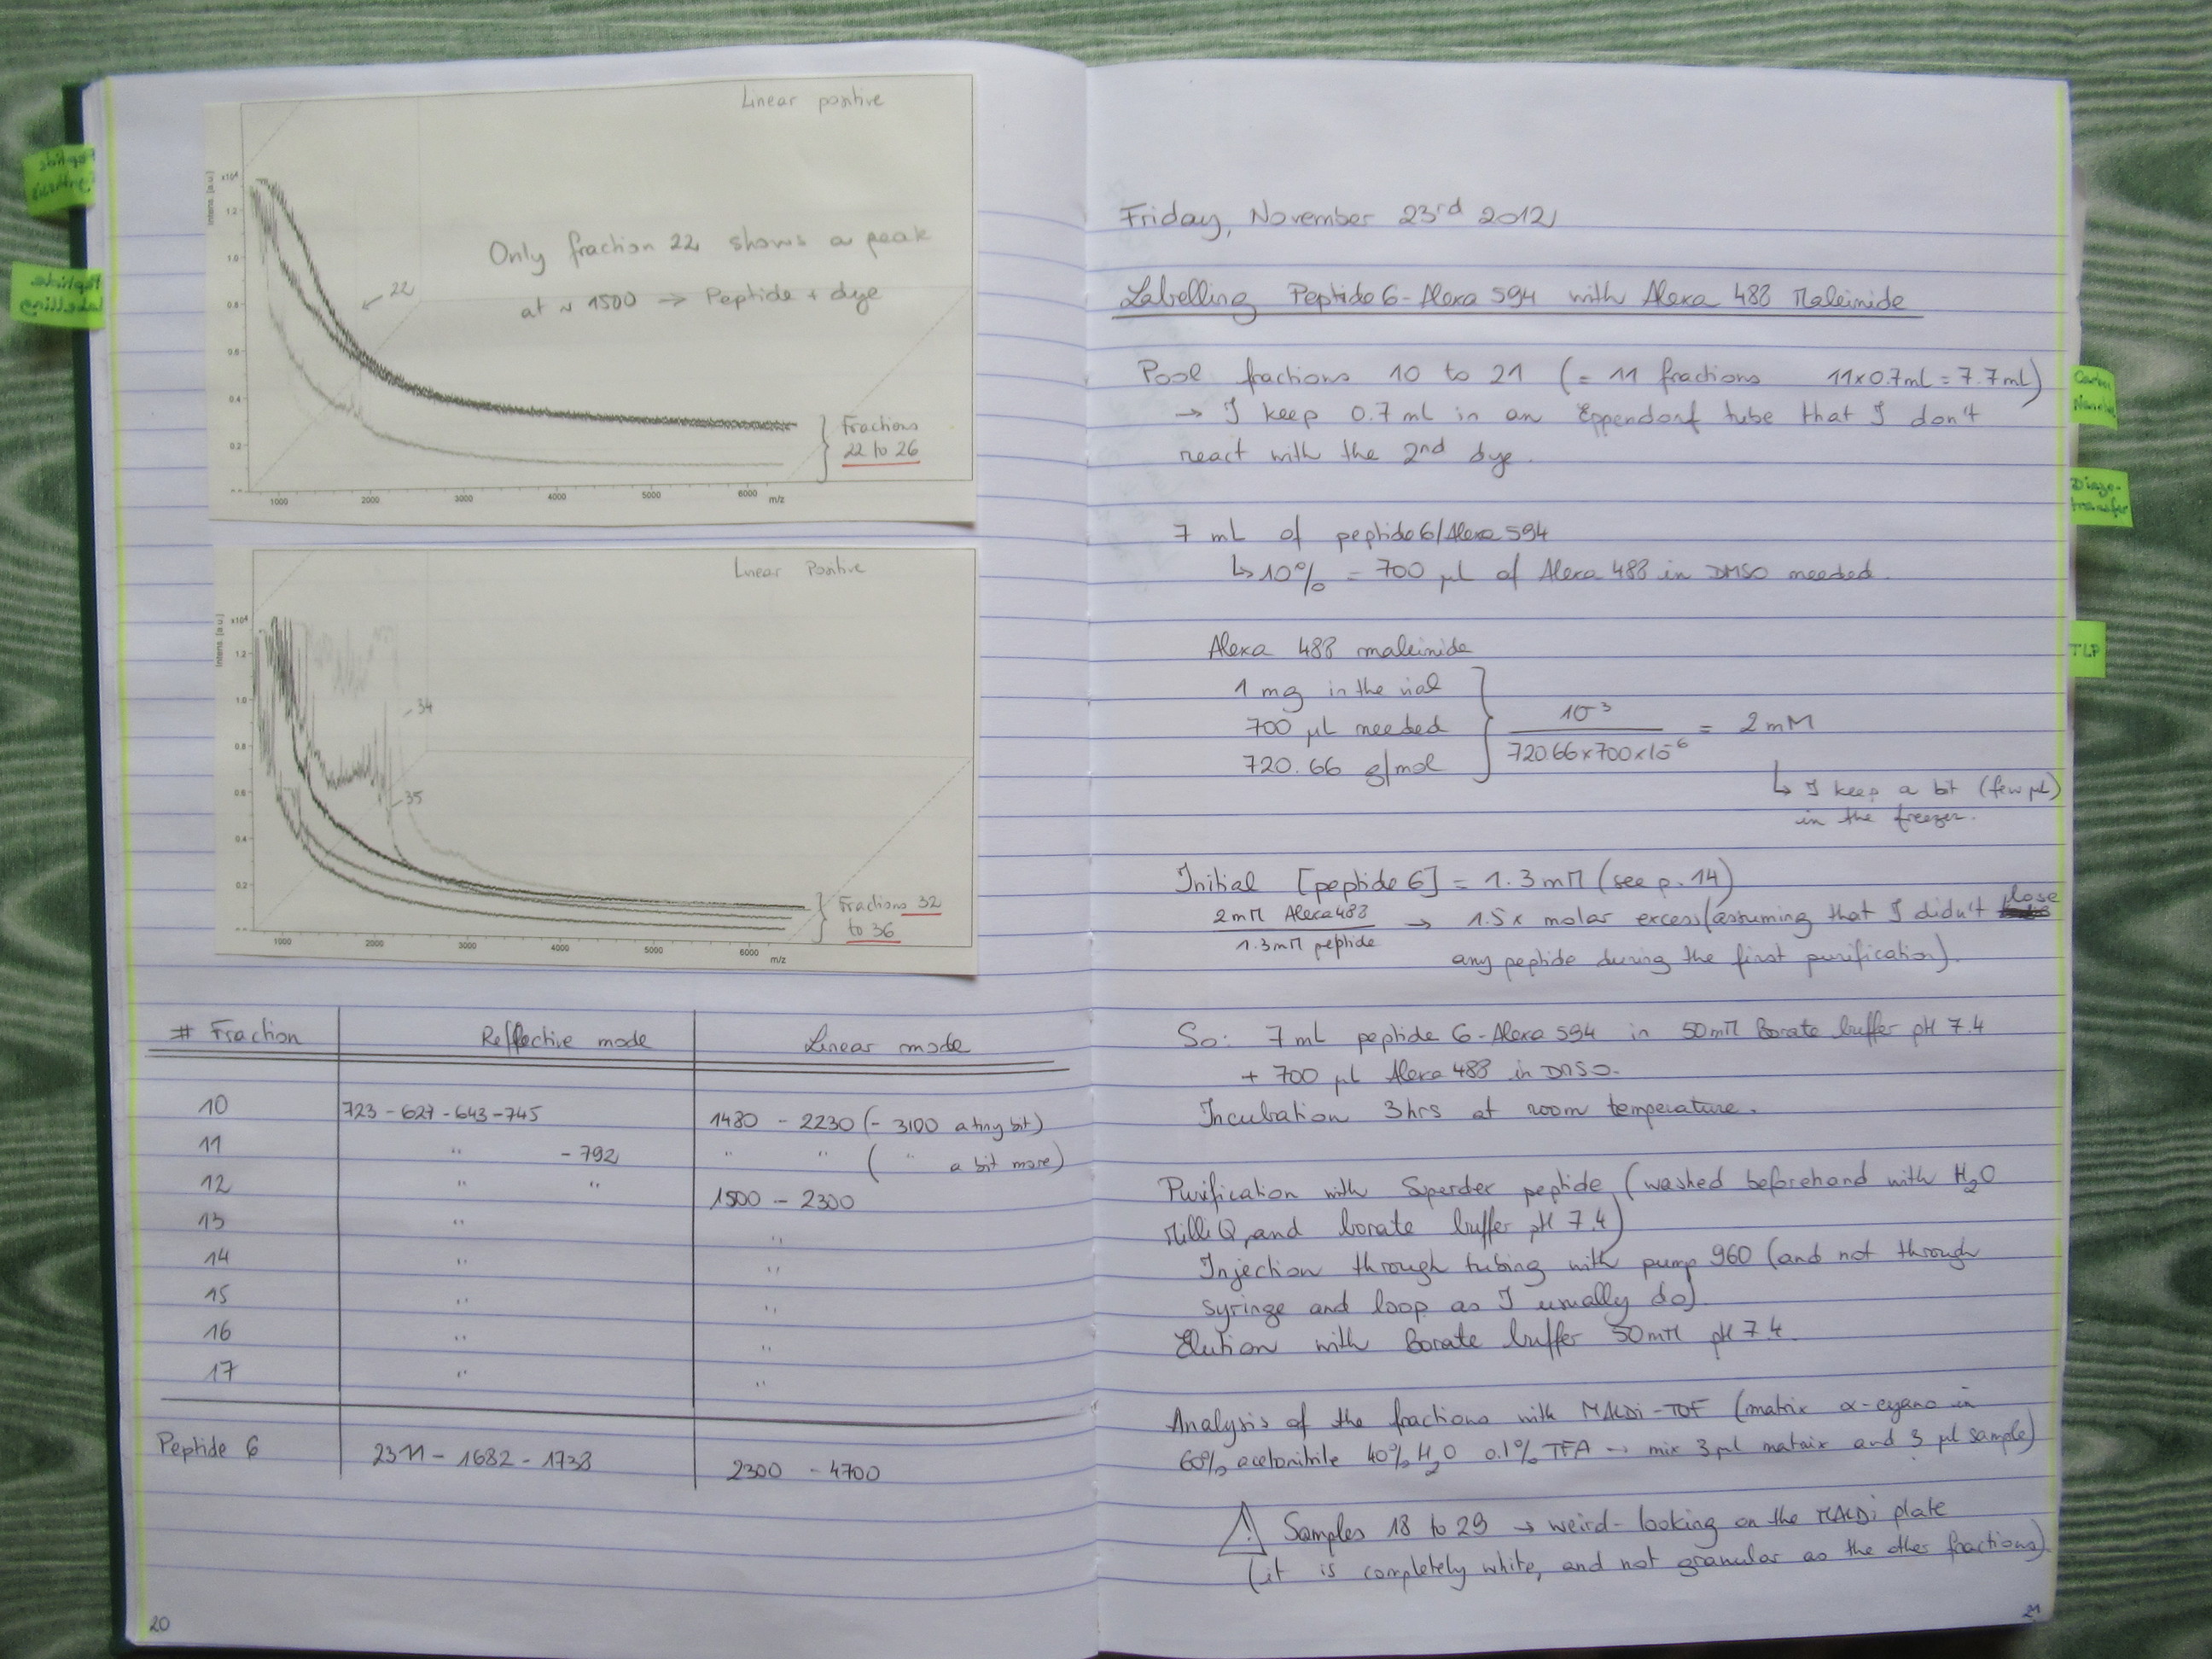 Peptide
Synthesis
Peptide
labelling
Linear positive
Intens. [a.u.]
x10⁴
1.2
1.0
0.8
0.6
0.4
0.2
22
Only fraction 22 shows a peak
at ~ 1500 → Peptide + dye
} Fractions
22 to 26
1000 2000 3000 4000 5000 6000 m/z
Linear Positive
Intens. [a.u.]
x10⁴
1.2
1.0
0.8
0.6
0.4
0.2
34
35
} Fractions 32
to 36
1000 2000 3000 4000 5000 6000 m/z
# Fraction Reflective mode Linear mode
10 723 - 627 - 643 - 745 1480 - 2230 (- 3100 a tiny bit)
11 " - 792 " " ( " a bit more)
12 " " 1500 - 2300
13 " "
14 " "
15 " "
16 " "
17 " "
Peptide 6 2311 - 1682 - 1738 2300 - 4700
20
Friday, November 23rd 2012
Labelling Peptide 6 - Alexa 594 with Alexa 488 Maleimide
Pool fractions 10 to 21 (= 11 fractions 11 x 0.7 mL = 7.7 mL)
→ I keep 0.7 mL in an Eppendorf tube that I don't
react with the 2nd dye.
7 mL of peptide 6/Alexa 594
↳ 10% = 700 µL of Alexa 488 in DMSO needed.
Alexa 488 maleimide
1 mg in the vial
700 µL needed
720.66 g/mol
10⁻³ / 720.66 x 700 x 10⁻⁶ = 2 mM
↳ I keep a bit (few µL)
in the freezer.
Initial [peptide 6] = 1.3 mM (see p. 14)
2mM Alexa 488 / 1.3mM peptide → 1.5 x molar excess (assuming that I didn't lose
any peptide during the first purification).
So: 7 mL peptide 6 - Alexa 594 in 50 mM Borate buffer pH 7.4
+ 700 µL Alexa 488 in DMSO.
Incubation 3 hrs at room temperature.
Purification with Superdex peptide (washed beforehand with H₂O
MilliQ, and borate buffer pH 7.4)
Injection through tubing with pump 960 (and not through
syringe and loop as I usually do)
Elution with Borate buffer 50 mM pH 7.4.
Analysis of the fractions with MALDi-TOF (matrix α-cyano in
60% acetonitrile 40% H₂O 0.1% TFA → mix 3 µL matrix and 3 µL sample)
⚠ Samples 18 to 29 → weird-looking on the MALDi plate
(it is completely white, and not granular as the other fractions)
21
Diazo-
transfer
TLP